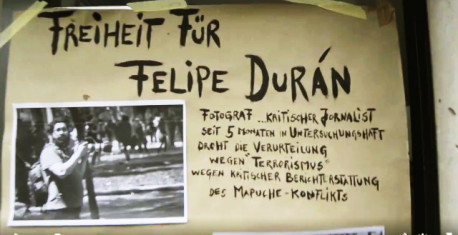 FREIHEIT FÜR
FELIPE DURÁN
FOTOGRAF .. KRITISCHER JORNALIST
SEIT 5 MONATEN IN UNTERSUCHUNGSHAFT
DROHT DIE VERURTEILUNG
WEGEN "TERRORISMUS"
WEGEN KRITISCHER BERICHTERSTATTUNG
DES MAPUCHE-KONFLIKTS